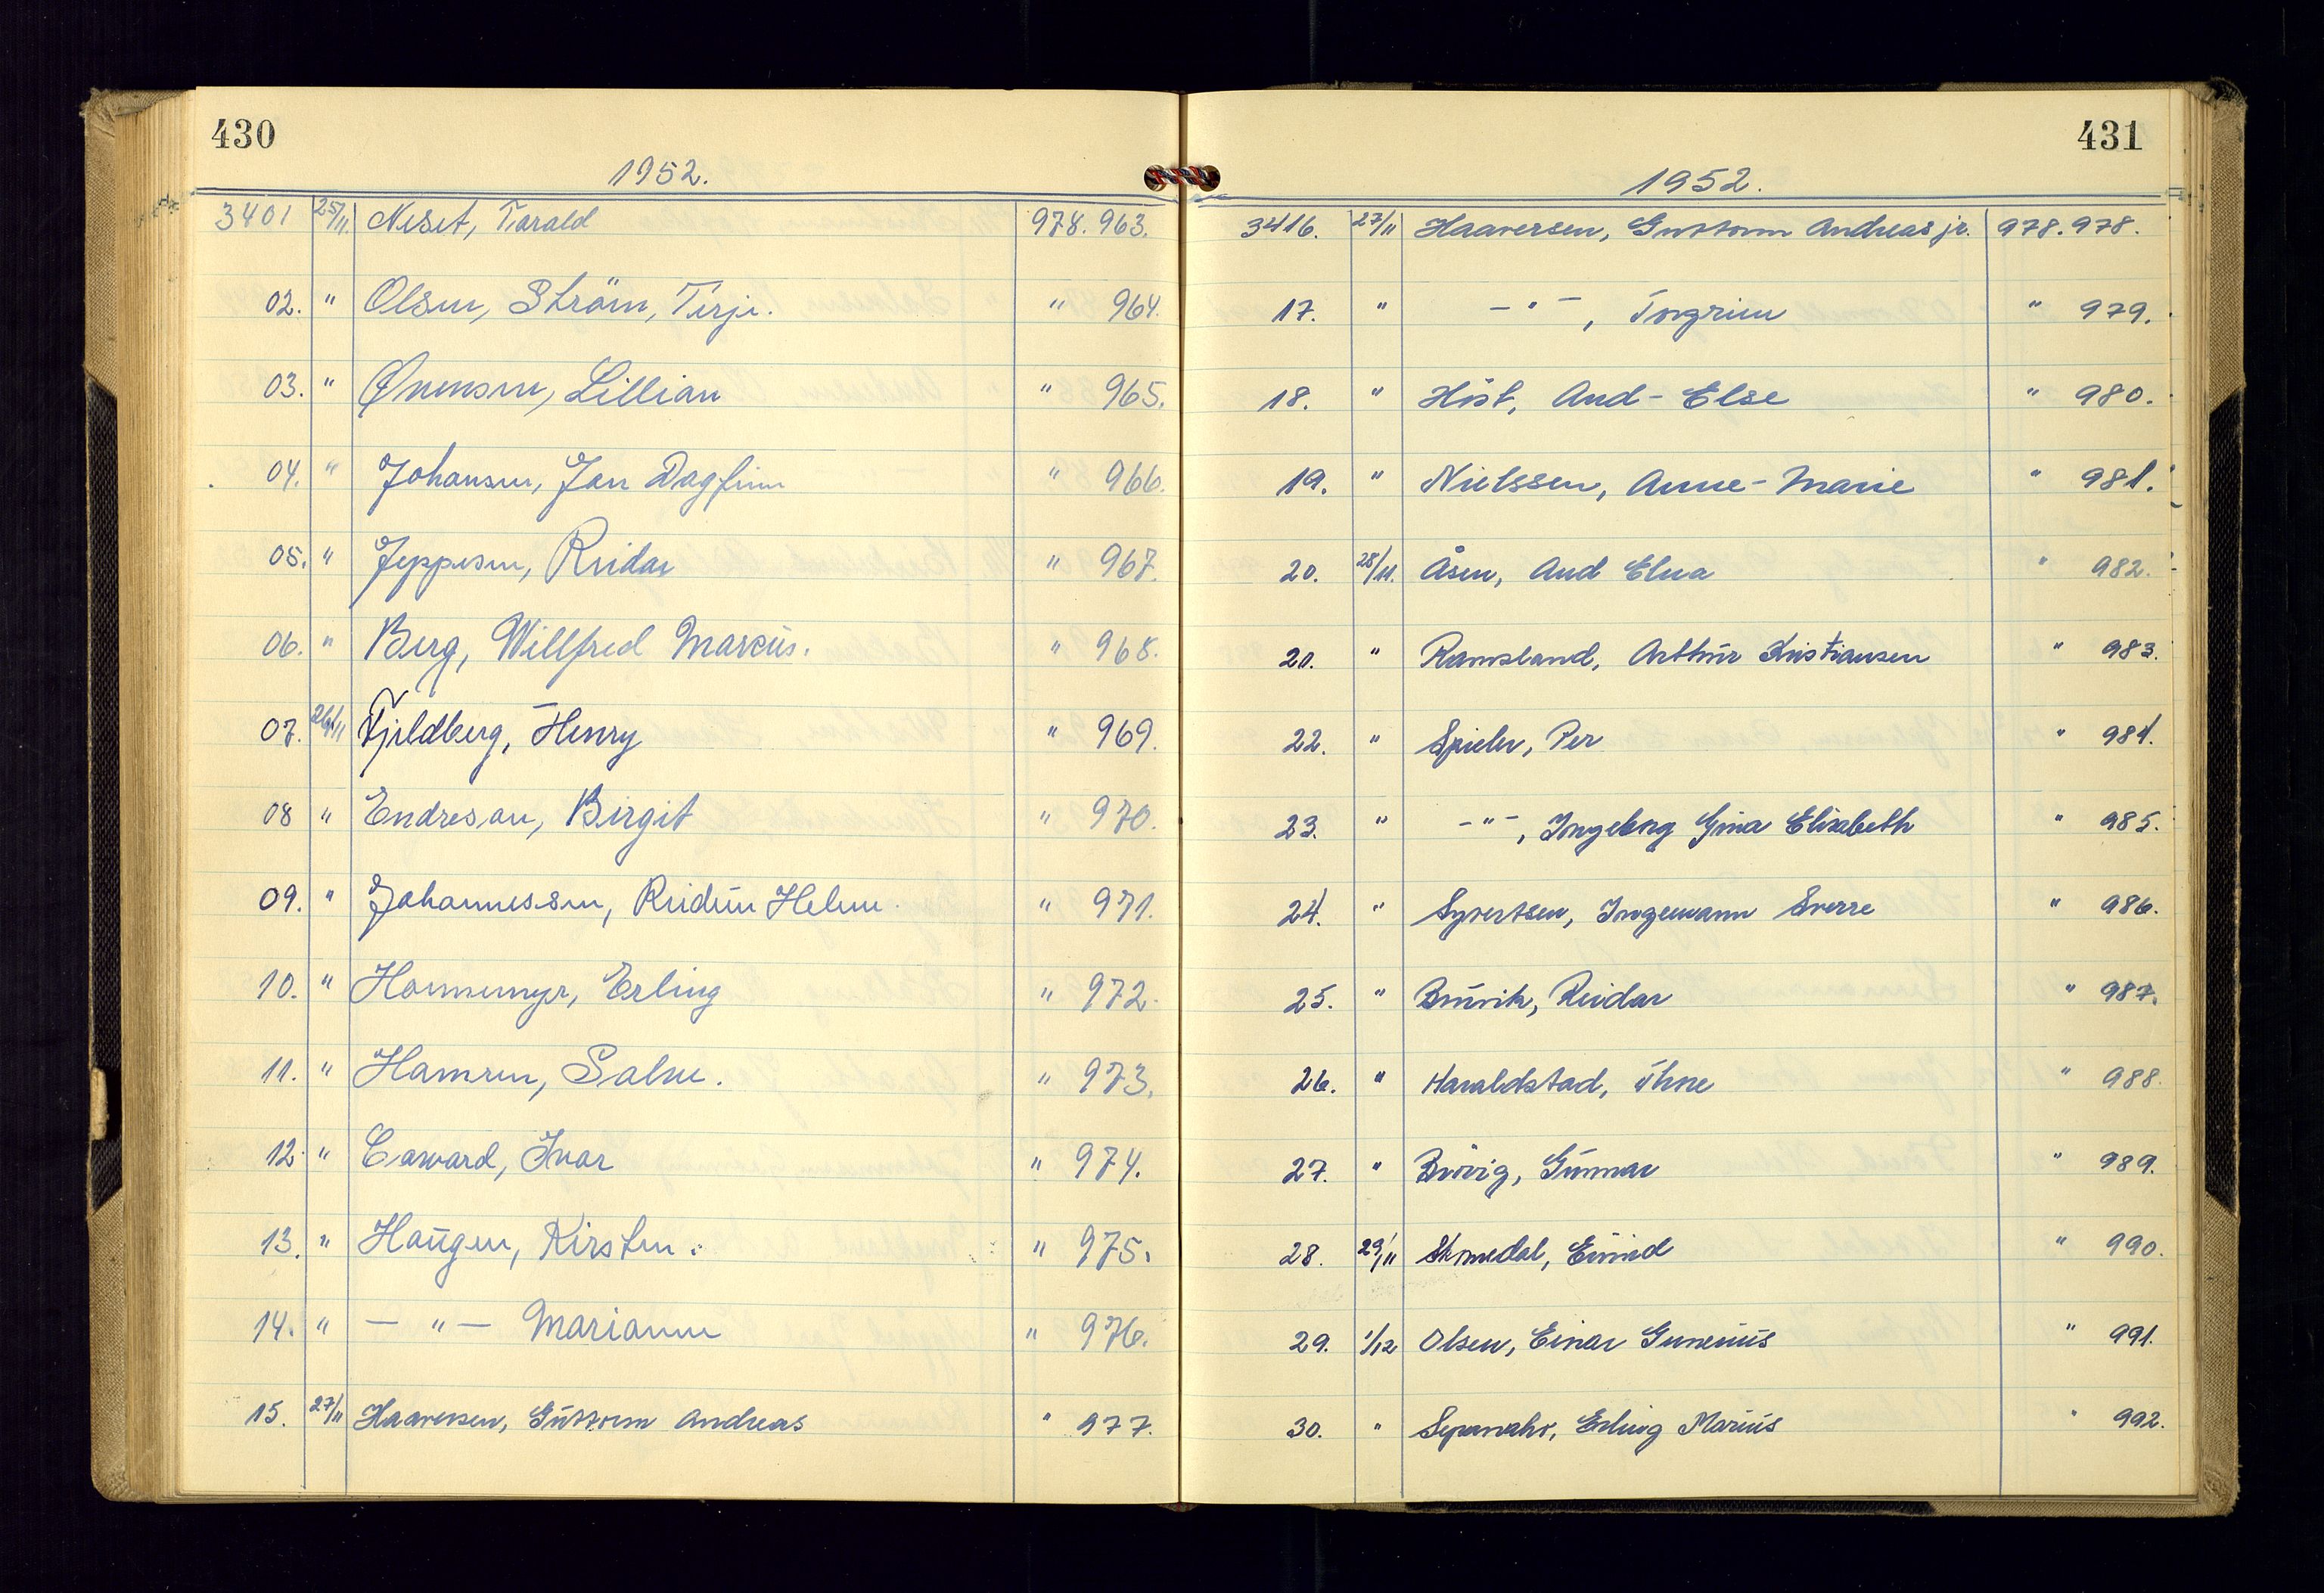 430
1952.
3401 25/11. Neset, Tarald 978.963.
02. " Olsen, Ström, Terje. " 964.
03. " Ønensen, Lillian " 965.
04. " Johansen, Jan Dagfinn " 966.
05. " Jeppesen, Reidar " 967.
06. " Berg, Willfred Marcus. " 968.
07. 26/11 Fjeldberg, Henry " 969.
08 " Endresen, Birgit " 970.
09. " Johannessen, Reidun Helene " 971.
10. " Hommemyr, Erling " 972.
11. " Hamren, Salve. " 973.
12. " Caward, Ivar " 974.
13. " Haugen, Kirsten. " 975.
14. " — " — Marianne " 976.
15. 27/11 Haaversen, Guttorm Andreas " 977.
431
1952.
3416. 27/11 Haaversen, Guttorm Andreas jr. 978.978.
17. " — " —, Torgrim " 979.
18. " Höst, Aud-Else " 980.
19. " Nielssen, Anne-Marie " 981.
20. 28/11. Åsen, Aud Elna " 982.
20. " Ramsland, Arthur Kristiansen " 983.
22. " Spieler, Per " 984.
23. " — " —, Ingeborg Gina Elisabeth " 985.
24. " Syvertsen, Ingemann Sverre " 986.
25. " Bruvik, Reidar " 987.
26. " Haraldstad, Thne " 988.
27. " Brövig, Gunnar " 989.
28. 29/11 Skomedal, Eivind " 990.
29. 1/12 Olsen, Einar Gunerius " 991.
30. " Erling Marius " 992.